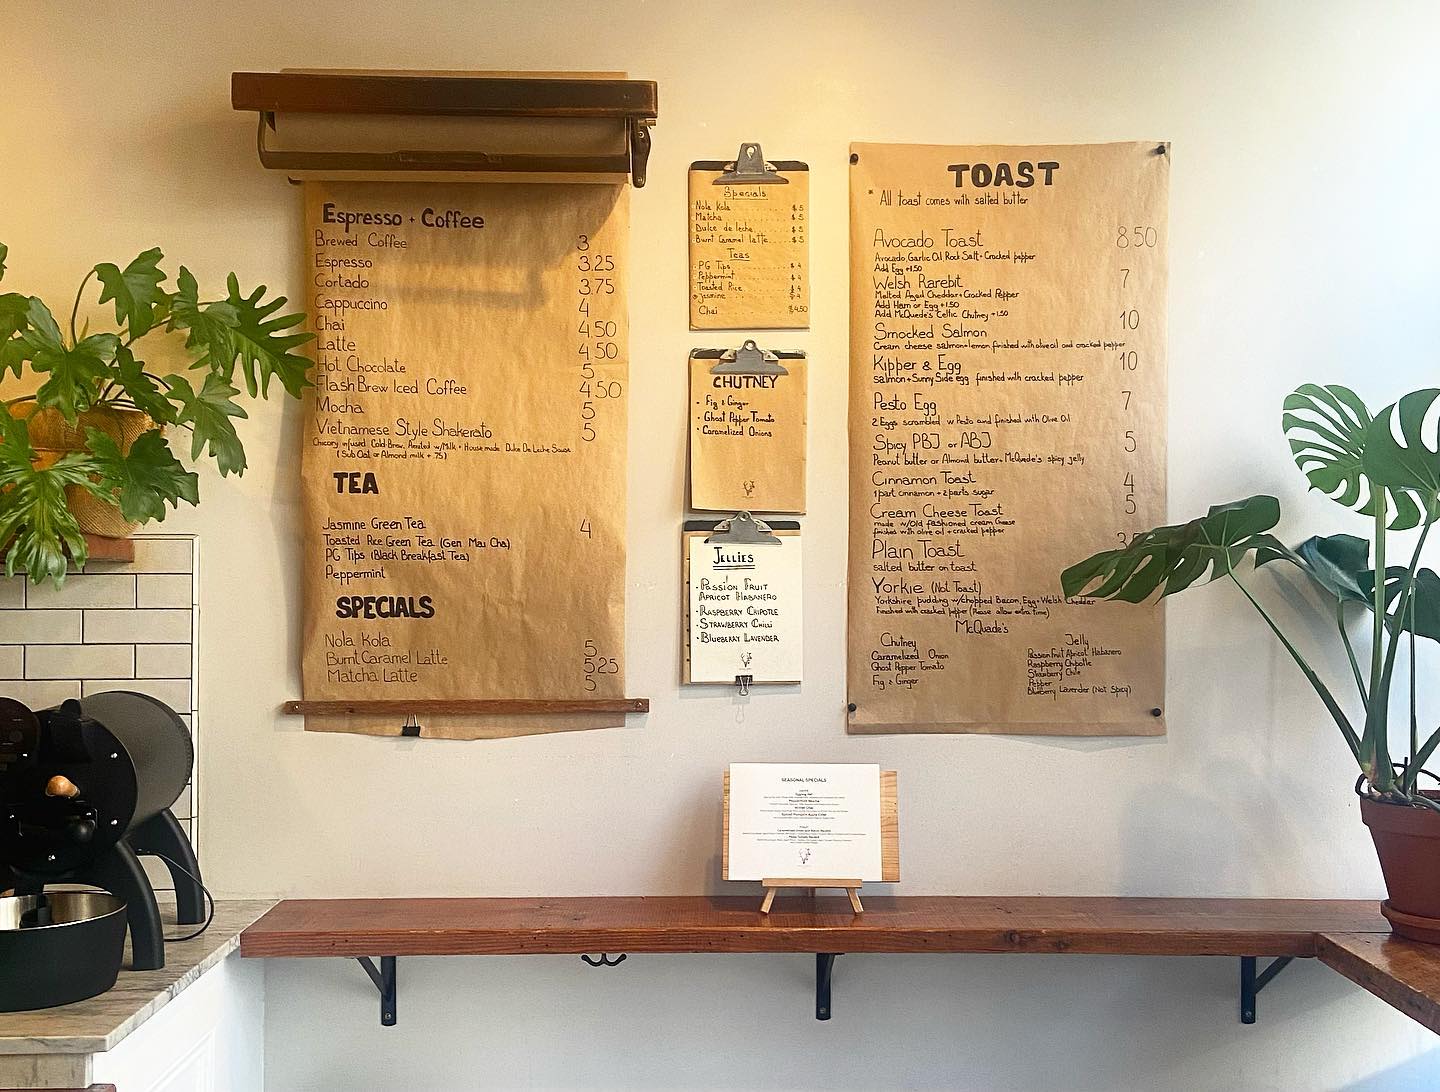 Espresso + Coffee
Brewed Coffee 3
Espresso 3.25
Cortado 3.75
Cappuccino 4
Chai 4.50
Latte 4.50
Hot Chocolate 5
Flash Brew Iced Coffee 4.50
Mocha 5
Vietnamese Style Shakerato 5
Chicory infused Cold-Brew, Aerated w/Milk + House made Dulce De Leche Sauce
(Sub Oat or Almond milk + .75)
TEA
Jasmine Green Tea 4
Toasted Rice Green Tea (Gen Mai Cha)
PG Tips (Black Breakfast Tea)
Peppermint
SPECIALS
Nola Kola 5
Burnt Caramel Latte 5.25
Matcha Latte 5
Specials
Nola Kola $5
Matcha $5
Dulce de leche $5
Burnt Caramel latte $5
Teas
PG Tips $4
Peppermint $4
Toasted Rice $4
Jasmine $4
Chai $4.50
CHUTNEY
- Fig & Ginger
- Ghost Pepper Tomato
- Caramelized Onions
JELLIES
- PASSION FRUIT
APRICOT HABANERO
- RASPBERRY CHIPOTLE
- STRAWBERRY CHILI
- BLUEBERRY LAVENDER
TOAST
* All toast comes with salted butter
Avocado Toast 8.50
Avocado, Garlic Oil Rock Salt + Cracked pepper
Add Egg +1.50
Welsh Rarebit 7
Melted Aged Cheddar + Cracked Pepper
Add Ham or Egg +1.50
Add McQuade's Celtic Chutney +1.50
Smocked Salmon 10
Cream cheese salmon+lemon finished with olive oil and cracked pepper
Kipper & Egg 10
salmon + Sunny Side egg finished with cracked pepper
Pesto Egg 7
2 Eggs scrambled w Pesto and finished with Olive Oil
Spicy PBJ or ABJ 5
Peanut butter or Almond butter + McQuade's spicy jelly
Cinnamon Toast 4
1 part cinnamon + 2 parts sugar
Cream Cheese Toast 5
made w/Old fashioned cream cheese
finished with olive oil + cracked pepper
Plain Toast
salted butter on toast
Yorkie (Not Toast)
Yorkshire pudding w/chopped Bacon, Egg + Welsh Cheddar
Finished with cracked pepper (Please allow extra time)
McQuade's
Chutney
Caramelized Onion
Ghost Pepper Tomato
Fig & Ginger
Jelly
Passion Fruit Apricot Habanero
Raspberry Chipotle
Strawberry Chile
Pepper
Blueberry Lavender (Not Spicy)
SEASONAL SPECIALS